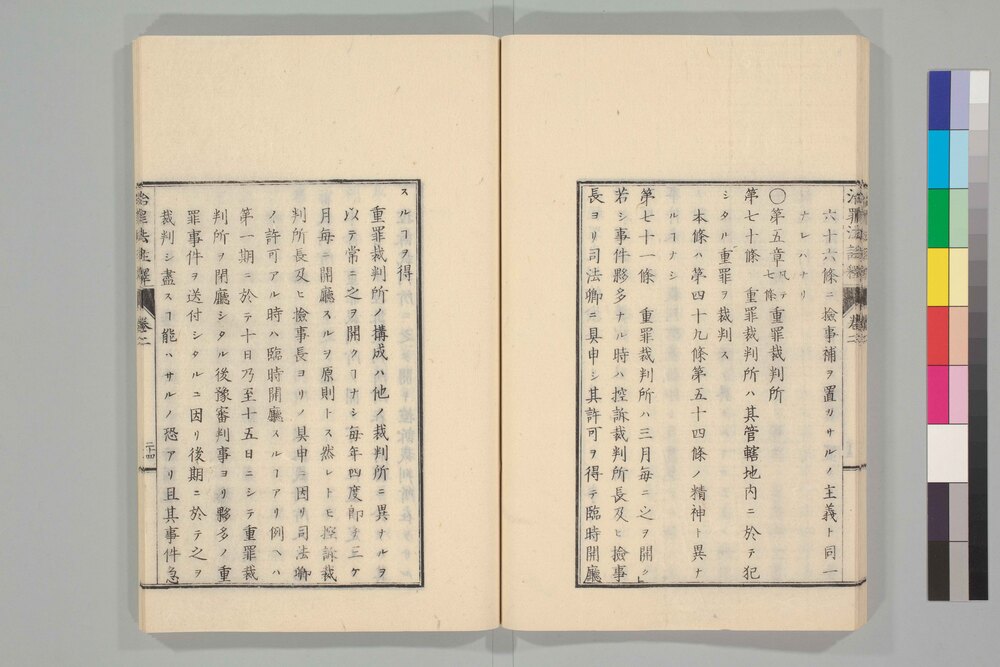 六十六條ニ撿事補ヲ置カサルノ主義ト同一
ナレハナリ
〇第五章 凡テ七條 重罪裁判所
第七十條 重罪裁判所ハ其管轄地内ニ於テ犯
シタル重罪ヲ裁判ス
本條ハ第四十九條第五十四條ノ精神ト異ナ
ルヿナシ
第七十一條 重罪裁判所ハ三月毎ニ之ヲ開ク」
若シ事件夥多ナル時ハ控訴裁判所長及ヒ撿事
長ヨリ司法卿ニ具申シ其許可ヲ得テ臨時開廳
スルヿヲ得
重罪裁判所ノ搆成ハ他ノ裁判所ニ異ナルヲ
以テ常ニ之ヲ開クヿナシ毎年四度即チ三ケ
月毎ニ開廳スルヲ原則トス然レトモ控訴裁
判所長及ヒ撿事長ヨリノ具申ニ因リ司法卿
ノ許可アル時ハ臨時開廳スルヿアリ例ヘハ
第一期ニ於テ十日乃至十五日ニシテ重罪裁
判所ヲ閉廳シタル後豫審判事ヨリ夥多ノ重
罪事件ヲ送付シタルニ因リ後期ニ於テ之ヲ
裁判シ盡スヿ能ハサルノ恐アリ且其事件急
治罪法註釋 卷之二 二十四